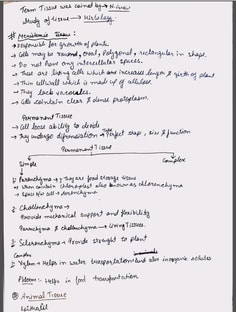 Term Tissue was coined by → N. Grew
Study of tissue → Histology
# Meristemic Tissue :
→ responsible for growth of plant.
→ Cells may be round, oval, polygonal, rectangular in shape.
→ Do not have any intercellular spaces.
→ These are living cells which increase length & girth of plant
→ Thin cell wall which is made up of cellulose.
→ They lack vacuoles.
→ Cells contain clear & dense protoplasm.
Permanent Tissue
→ Cell loose ability to divide
→ They undergo differentiation → Perfect shape, size & function
Permanent Tissue
Simple
Complex
1) Parenchyma → They are food storage tissue
→ When contain chloroplast also known as chlorenchyma
→ Space b/w cell →
2) Chollenchyma →
Provide mechanical support and flexibility
Parenchyma & chollenchyma → Living Tissues.
3) Sclerenchyma → Provide strength to plant
Complex
1) Xylem → Helps in water transportation and also in inorganic solutes
Phloem :- Helps in food transportation
Animal Tissue
Epithelial